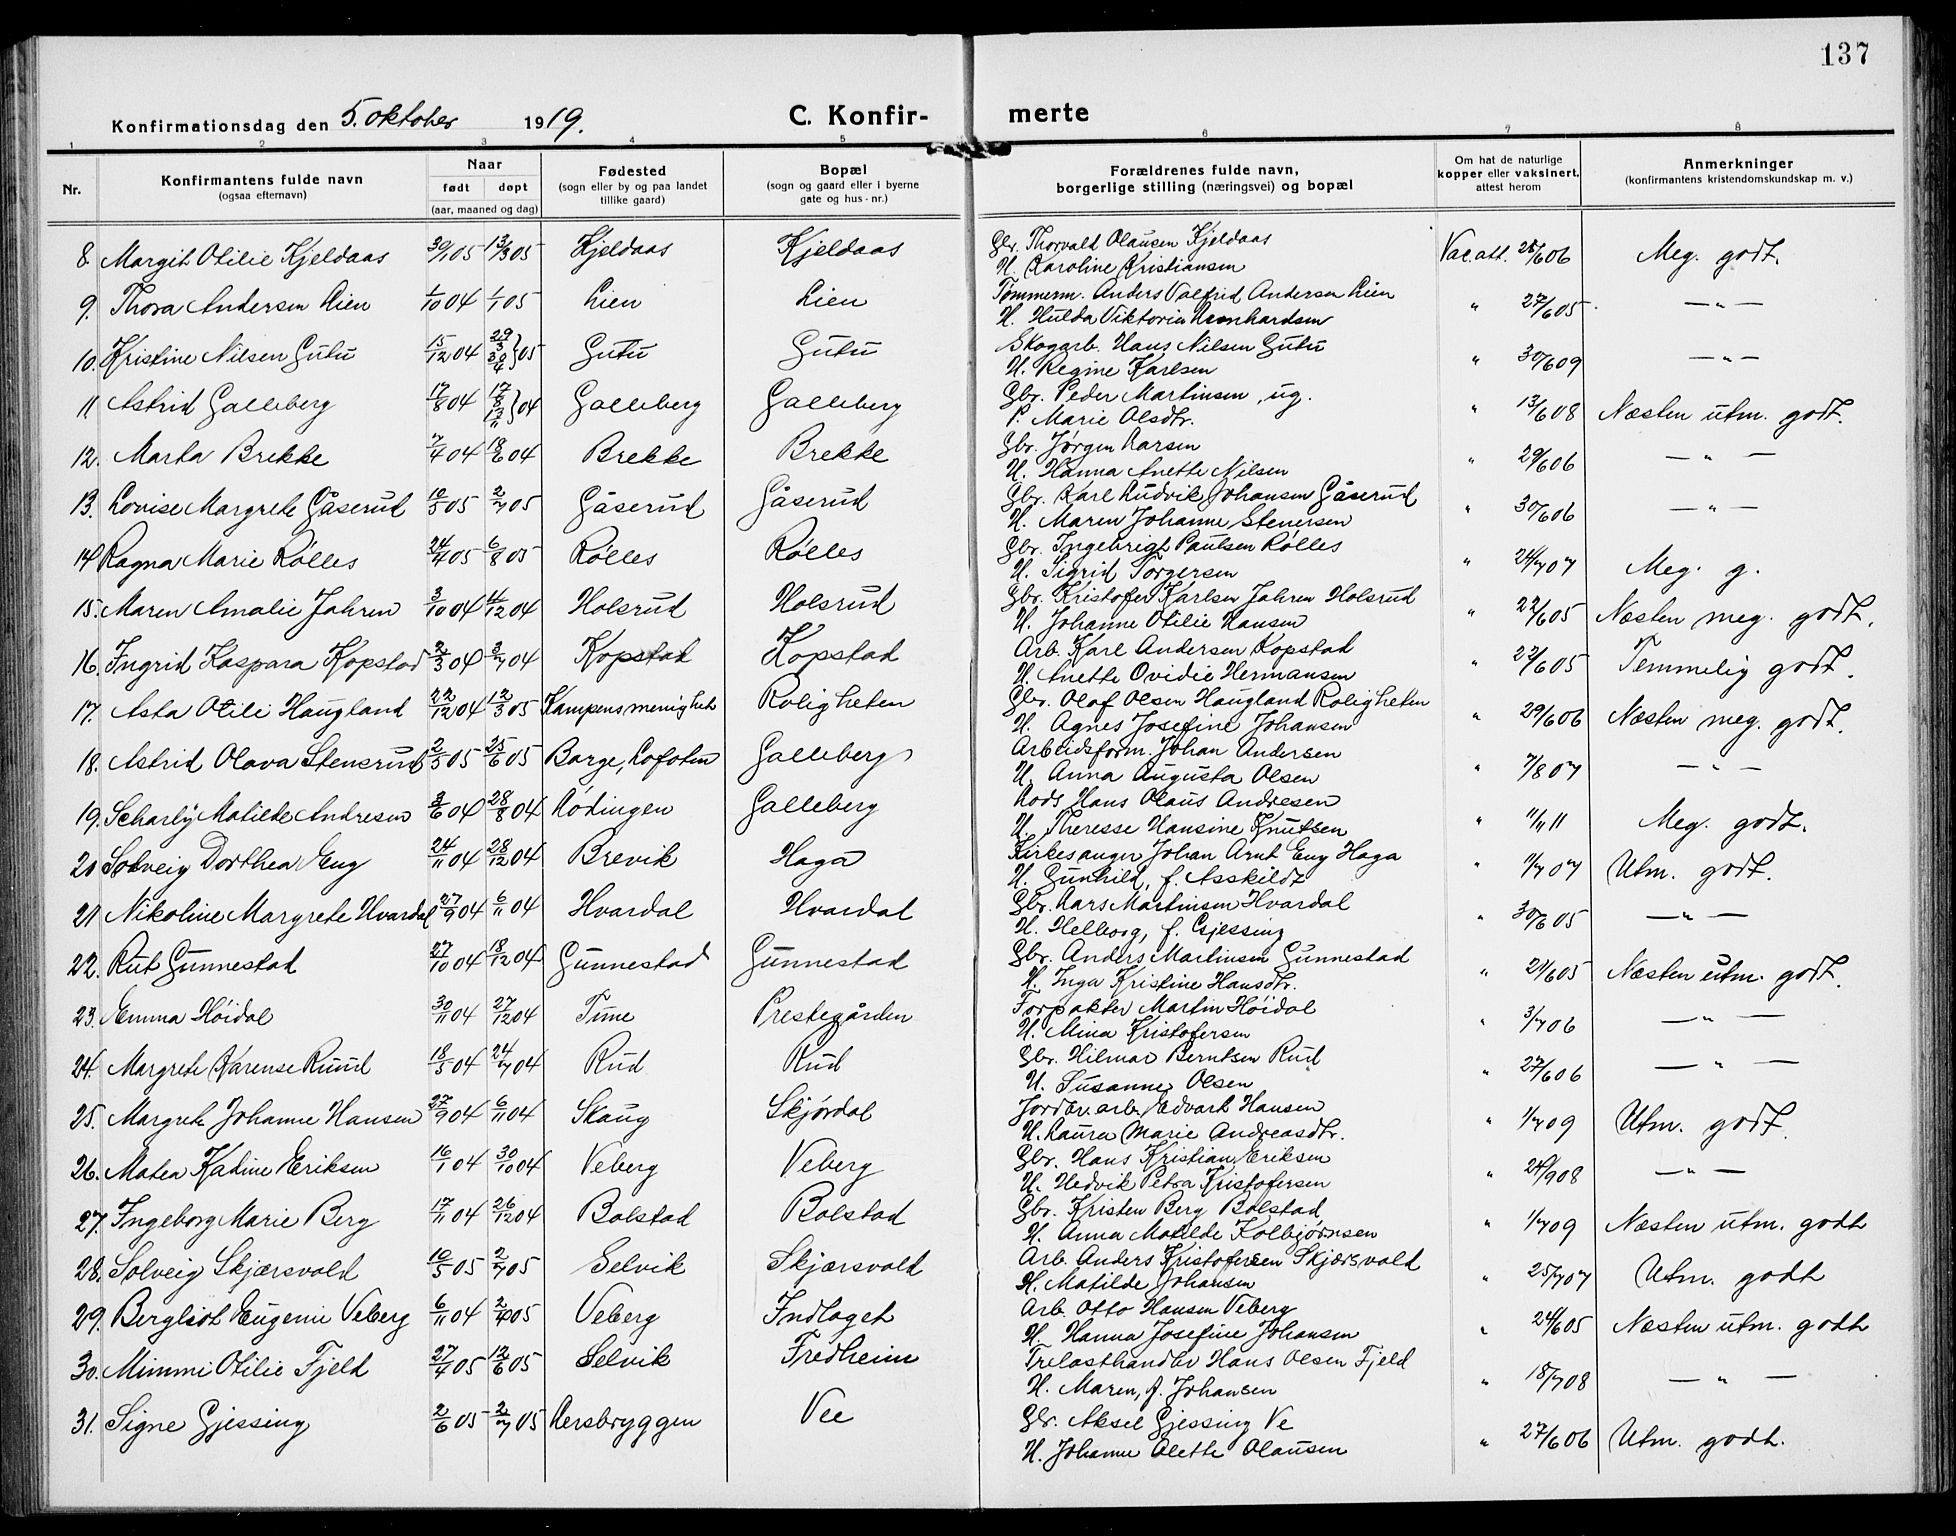 137
Konfirmationsdag den 5. oktober 1919. C. Konfir- merte
1 2 3 4 5 6 7 8
Nr. Konfirmantens fulde navn (ogsaa efternavn) Naar født døpt (aar, maaned og dag) Fødested (sogn eller by og paa landet tillike gaard) Bopæl (sogn og gaard eller i byerne gate og hus-nr.) Forældrenes fulde navn, borgerlige stilling (næringsvei) og bopæl Om hat de naturlige kopper eller vaksinert, attest herom Anmerkninger (konfirmantens kristendomskundskap m. v.)
8 Margit Otilie Kjeldaas 30/1 05 13/3 05 Kjeldaas Kjeldaas Gbr. Thorvald Olausen Kjeldaas Vac. att. 25/6 06 Meg. godt.
H. Karoline Kristiansen
9. Thora Andersen Lien 1/10 04 1/1 05 Lien Lien Tømmerm. Anders Valfrid Andersen Lien " 27/6 05 — " —
H. Hulda Viktoria Leonhardsen
10. Kristine Nilsen Gutu 15/12 04 29/3 30/4 } 05 Gutu Gutu Skogarb. Hans Nilsen Gutu " 30/6 09 — " —
H. Regine Karlsen
11 Astrid Galleberg 17/8 04 } 04 Galleberg Galleberg Gbr. Peder Martinsen, ug. " 13/6 08 Næsten utm. godt.
P. Marie Olsdtr.
12. Marta Brekke 7/4 04 18/6 04 Brekke Brekke Gbr. Jørgen Larsen " 29/6 06 — " —
H. Hanna Anette Nilsen
13. Lovise Margrete Gåserud 10/5 05 2/7 05 Gåserud Gåserud Gbr. Karl Ludvik Johansen Gåserud " 30/6 06 — " —
H. Maren Johanne Stenersen
14 Ragna Marie Rølles 24/4 05 6/8 05 Rølles Rølles Gbr. Ingebrigt Paulsen Rølles " 24/7 07 Meg. g.
H. Sigrid Torgersen
15. Maren Amalie Jahren 3/10 04 4/12 04 Holsrud Holsrud Gbr. Kristofer Karlsen Jahren Holsrud " 22/6 05 Næsten meg. godt.
H. Johanne Otilie Hansen
16. Ingrid Kaspara Kopstad 2/3 04 3/7 04 Kopstad Kopstad Arb. Karl Andersen Kopstad " 22/6 05 Temmelig godt.
H. Anette Ovidie Hermansen
17. Asta Otili Haugland 22/12 04 12/3 05 Kampens menighet Roligheten Gbr. Olaf Olsen Haugland Roligheten " 29/6 06 Næsten meg. godt.
H. Agnes Josefine Johansen
18. Astrid Olava Stensrud 2/5 05 25/6 05 Barge, Lofoten Galleberg Arbeidsform. Johan Andersen " 7/8 07 — " —
H. Anna Augusta Olsen
19. Scharly Matilde Andresen 3/6 04 28/8 04 Lødingen Galleberg Lods Hans Olaus Andresen " 11/11 11 Meg. godt.
H. Theresse Hansine Knutsen
20 Solveig Dorthea Eng 24/11 04 28/12 04 Brevik Haga Kirkesanger Johan Arnt Eng Haga " 11/7 07 Utm. godt.
H. Gunhild, f. Asskildt
21 Nikoline Margrete Hvardal 27/9 04 6/11 04 Hvardal Hvardal Gbr. Lars Martinsen Hvardal " 30/6 05 — " —
H. Helborg, f. Gjessing
22. Rut Gunnestad 27/10 04 18/12 04 Gunnestad Gunnestad Gbr. Anders Martinsen Gunnestad " 21/6 05 Næsten utm. godt.
H. Inga Kristine Hansdtr.
23. Emma Høidal 30/11 04 27/12 04 Time Prestegården Forpakter Martin Høidal " 3/7 06 — " —
H. Mina Kristofersen
24. Margrete Karense Ruud 18/5 04 24/7 04 Rud Rud Gbr. Hilmar Berntsen Rud " 27/6 06 — " —
H. Susanne Olsen
25. Margrete Johanne Hansen 27/9 04 6/11 04 Skaug Skjørdal Jordbr.arb. Edvart Hansen " 1/7 09 Utm. godt.
H. Laura Marie Andreasdtr.
26. Matea Katine Eriksen 16/1 04 30/10 04 Veberg Veberg Gbr. Hans Kristian Eriksen " 24/9 08 — " —
H. Hedvik Petra Kristofersen
27. Ingeborg Marie Berg 17/11 04 26/12 04 Bolstad Bolstad Gbr. Kristen Berg Bolstad " 1/7 09 Næsten utm. godt
H. Anna Matilde Kolbjørnsen
28. Solveig Skjærsvold 10/5 05 2/7 05 Selvik Skjærsvold Arb. Anders Kristofersen Skjærsvold " 25/7 07 Utm. godt
H. Matilde Johansen
29. Bergliot Eugenie Veberg 6/11 04 2/4 05 Veberg Indlaget Arb. Otto Hansen Veberg " 24/6 05 Næsten utm. godt
H. Hanna Josefine Johansen
30. Mimmi Otilie Fjeld 27/4 05 12/6 05 Selvik Fredheim Trelasthandler Hans Olsen Fjeld " 18/7 08 — " —
H. Maren, f. Johansen
31. Signe Gjessing 2/6 05 2/7 05 Lersbryggen Vee Gbr. Aksel Gjessing Ve " 27/6 06 Utm. godt.
H. Johanne Olette Olausen